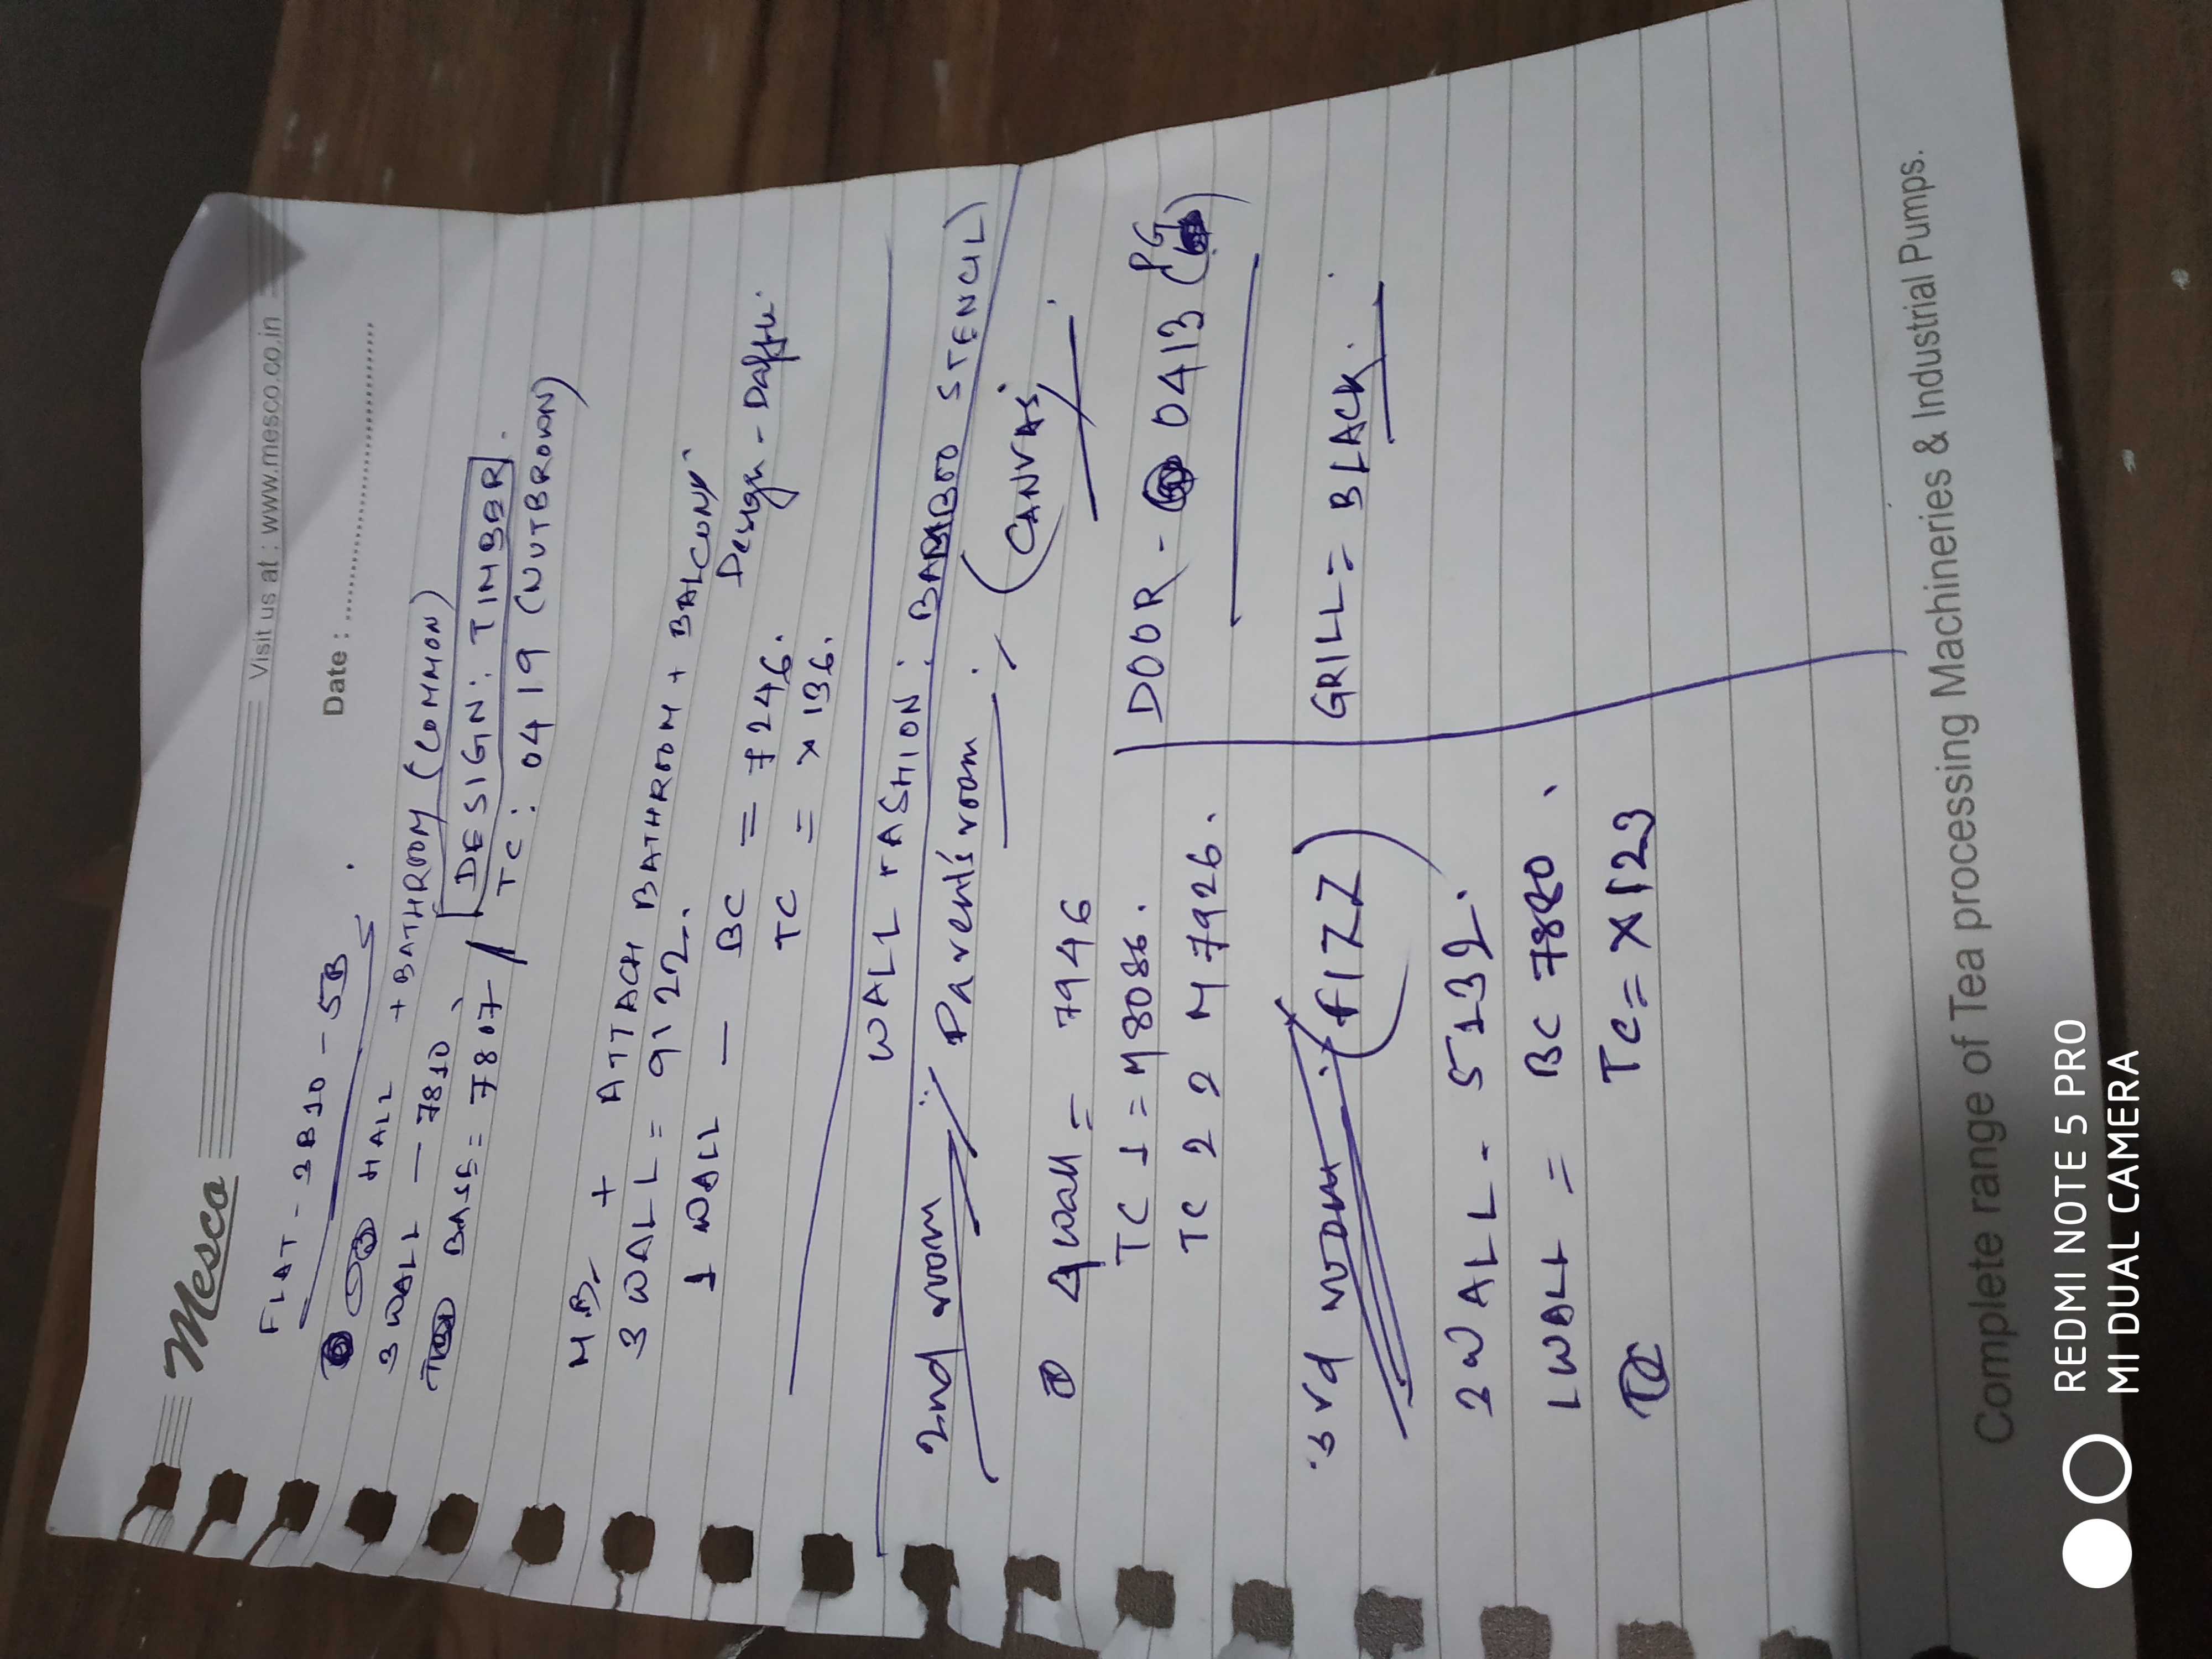 Mesco
Visit us at : www.mesco.co.in
Date :
FLAT - 3B10 - 5B
HALL + BATHROOM (COMMON)
3 WALL - 7810
DESIGN: TIMBER
BASE = 7807 / TC: 0419 (NUTBROWN)
M.B. + ATTACH BATHROOM + BALCONY
3 WALL = 9122.
Design -
1 WALL - BC = 7246.
TC = X136.
WALL FASHION: STENCIL)
2nd room : Parent's room : (CANVAS)
4 wall = 7946
TC 1 = M8086.
TC 2 = M7926.
DOOR - 0413 (PG)
3rd room (FIZZ)
GRILL = BLACK.
3 WALL - 5132.
1 WALL = BC 7880
TC = X123
Complete range of Tea processing Machineries & Industrial Pumps.
REDMI NOTE 5 PRO
MI DUAL CAMERA